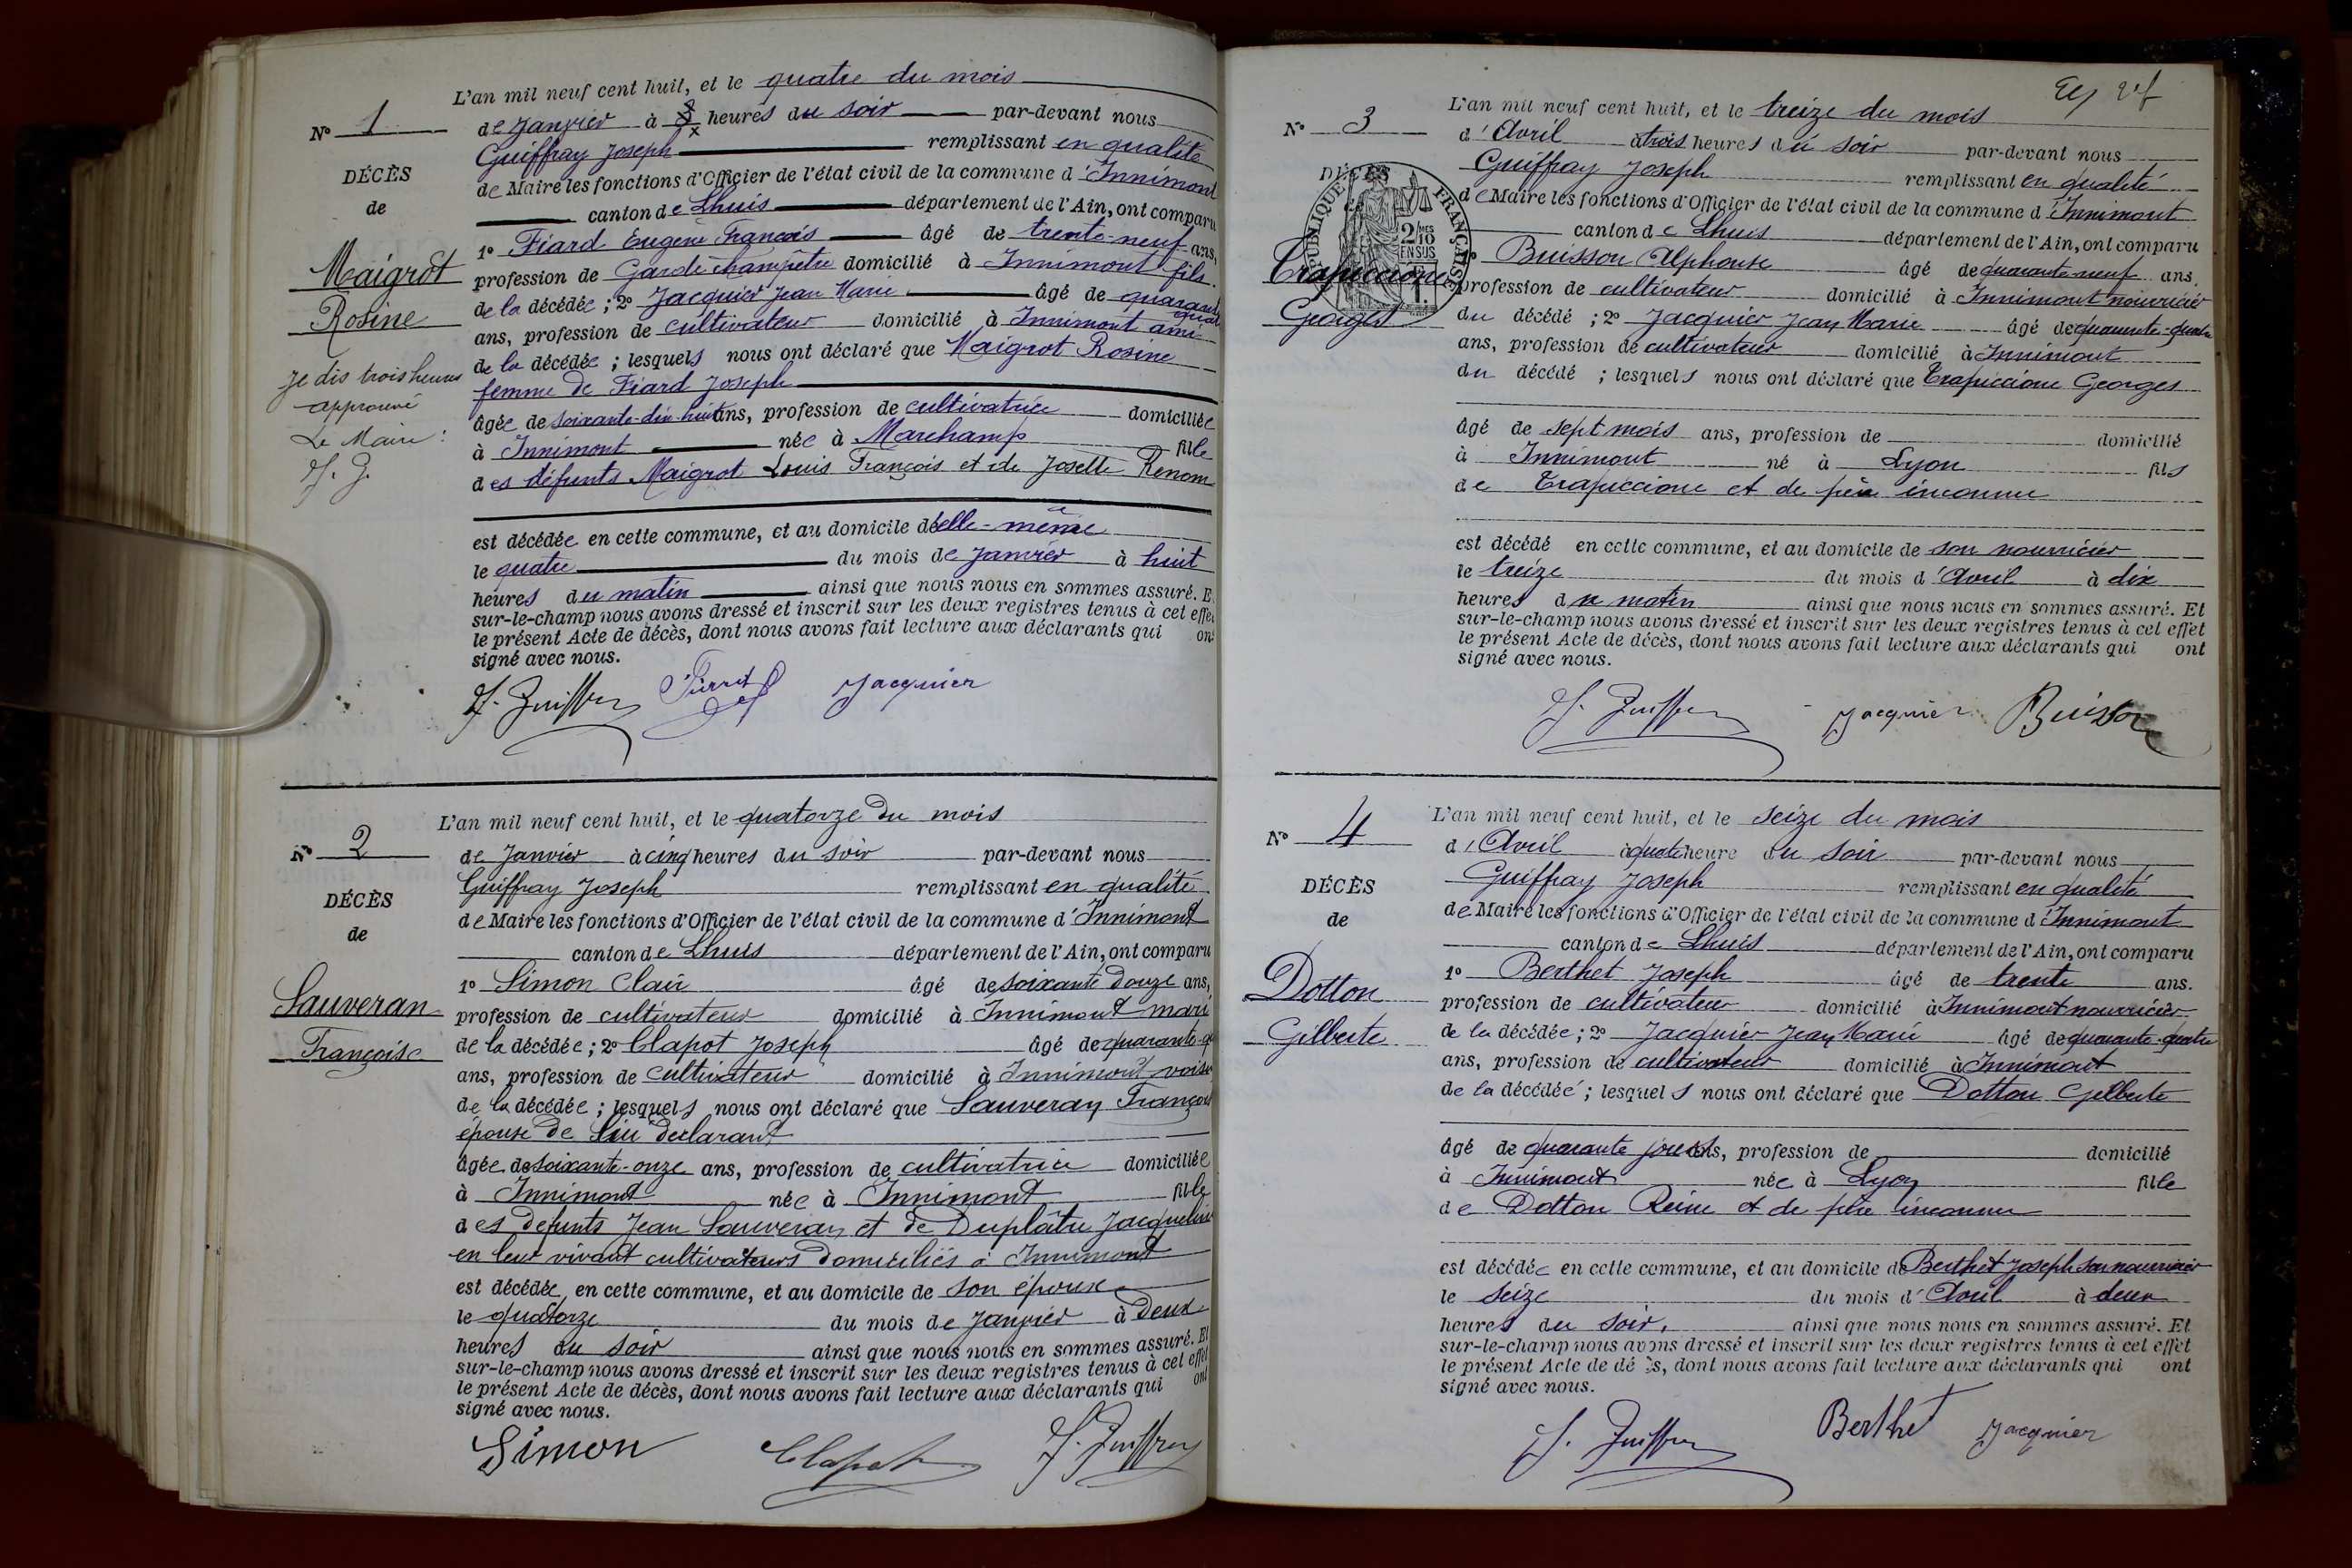 N° 1
DÉCÈS
de
Maigrot
Rosine
Je dis trois heures
approuvé
Le Maire :
J. G.
L'an mil neuf cent huit, et le quatre du mois
de Janvier à heures du soir par-devant nous
Guiffray Joseph remplissant en qualité
de Maire les fonctions d'Officier de l'état civil de la commune d'Innimont
canton de Lhuis département de l'Ain, ont comparu
1° Fiard Eugène François âgé de trente-neuf ans,
profession de Garde champêtre domicilié à Innimont fils
de la décédée ; 2° Jacquier Jean Marie âgé de quarante
ans, profession de cultivateur domicilié à Innimont ami
de la décédée ; lesquels nous ont déclaré que Maigrot Rosine
femme de Fiard Joseph
âgée de soixante-dix-huit ans, profession de cultivatrice domiciliée
à Innimont née à Marchamp fille
des défunts Maigrot Louis François et de Josette Renom
est décédée en cette commune, et au domicile d'elle-même
le quatre du mois de Janvier à huit
heures du matin ainsi que nous nous en sommes assuré. E
sur-le-champ nous avons dressé et inscrit sur les deux registres tenus à cet effet
le présent Acte de décès, dont nous avons fait lecture aux déclarants qui ont
signé avec nous.
J. Guiffray Jacquier
N° 2
DÉCÈS
de
Sauveran
Françoise
L'an mil neuf cent huit, et le quatorze du mois
de Janvier à cinq heures du soir par-devant nous
Guiffray Joseph remplissant en qualité
de Maire les fonctions d'Officier de l'état civil de la commune d'Innimont
canton de Lhuis département de l'Ain, ont comparu
1° Simon Clair âgé de soixante douze ans,
profession de cultivateur domicilié à Innimont mari
de la décédée ; 2° Clapot Joseph âgé de quarante-
ans, profession de cultivateur domicilié à Innimont voisin
de la décédée ; lesquels nous ont déclaré que Sauveran François
épouse de déclarant
âgée de soixante-onze ans, profession de cultivatrice domiciliée
à Innimont née à Innimont fille
des défunts Jean Sauveran et de Duplâtre Jacqueline
en leur vivant cultivateurs domiciliés à Innimont
est décédée en cette commune, et au domicile de son époux
le quatorze du mois de Janvier à deux
heures du soir ainsi que nous nous en sommes assuré. Et
sur-le-champ nous avons dressé et inscrit sur les deux registres tenus à cet effet
le présent Acte de décès, dont nous avons fait lecture aux déclarants qui ont
signé avec nous.
Simon Clapot J. Guiffray
N° 3
DÉCÈS
RÉPUBLIQUE FRANÇAISE
2/10 EN SUS
Trapiccione
Georges
L'an mil neuf cent huit, et le treize du mois
d'Avril à trois heures du soir par-devant nous
Guiffray Joseph remplissant en qualité
de Maire les fonctions d'Officier de l'état civil de la commune d'Innimont
canton de Lhuis département de l'Ain, ont comparu
Buisson Alphonse âgé de quarante-neuf ans.
profession de cultivateur domicilié à Innimont nourricier
du décédé ; 2° Jacquier Jean Marie âgé de quarante-quatre
ans, profession de cultivateur domicilié à Innimont
du décédé ; lesquels nous ont déclaré que Trapiccione Georges
âgé de sept mois ans, profession de domicilié
à Innimont né à Lyon fils
de Trapiccione et de père inconnu
est décédé en cette commune, et au domicile de son nourricier
le treize du mois d'Avril à dix
heures du matin ainsi que nous nous en sommes assuré. Et
sur-le-champ nous avons dressé et inscrit sur les deux registres tenus à cet effet
le présent Acte de décès, dont nous avons fait lecture aux déclarants qui ont
signé avec nous.
J. Guiffray Jacquier Buisson
N° 4
DÉCÈS
de
Dotton
Gilberte
L'an mil neuf cent huit, et le seize du mois
d'Avril à quatre heure du soir par-devant nous
Guiffray Joseph remplissant en qualité
de Maire les fonctions d'Officier de l'état civil de la commune d'Innimont
canton de Lhuis département de l'Ain, ont comparu
1° Berthet Joseph âgé de trente ans.
profession de cultivateur domicilié à Innimont nourricier
de la décédée ; 2° Jacquier Jean Marie âgé de quarante-quatre
ans, profession de cultivateur domicilié à Innimont
de la décédée ; lesquels nous ont déclaré que Dotton Gilberte
âgé de quarante jours, profession de domicilié
à Innimont née à Lyon fille
de Dotton Reine et de père inconnu
est décédée en cette commune, et au domicile de Berthet Joseph son nourricier
le seize du mois d'Avril à deux
heures du soir, ainsi que nous nous en sommes assuré. Et
sur-le-champ nous avons dressé et inscrit sur les deux registres tenus à cet effet
le présent Acte de dé ès, dont nous avons fait lecture aux déclarants qui ont
signé avec nous.
J. Guiffray Berthet Jacquier